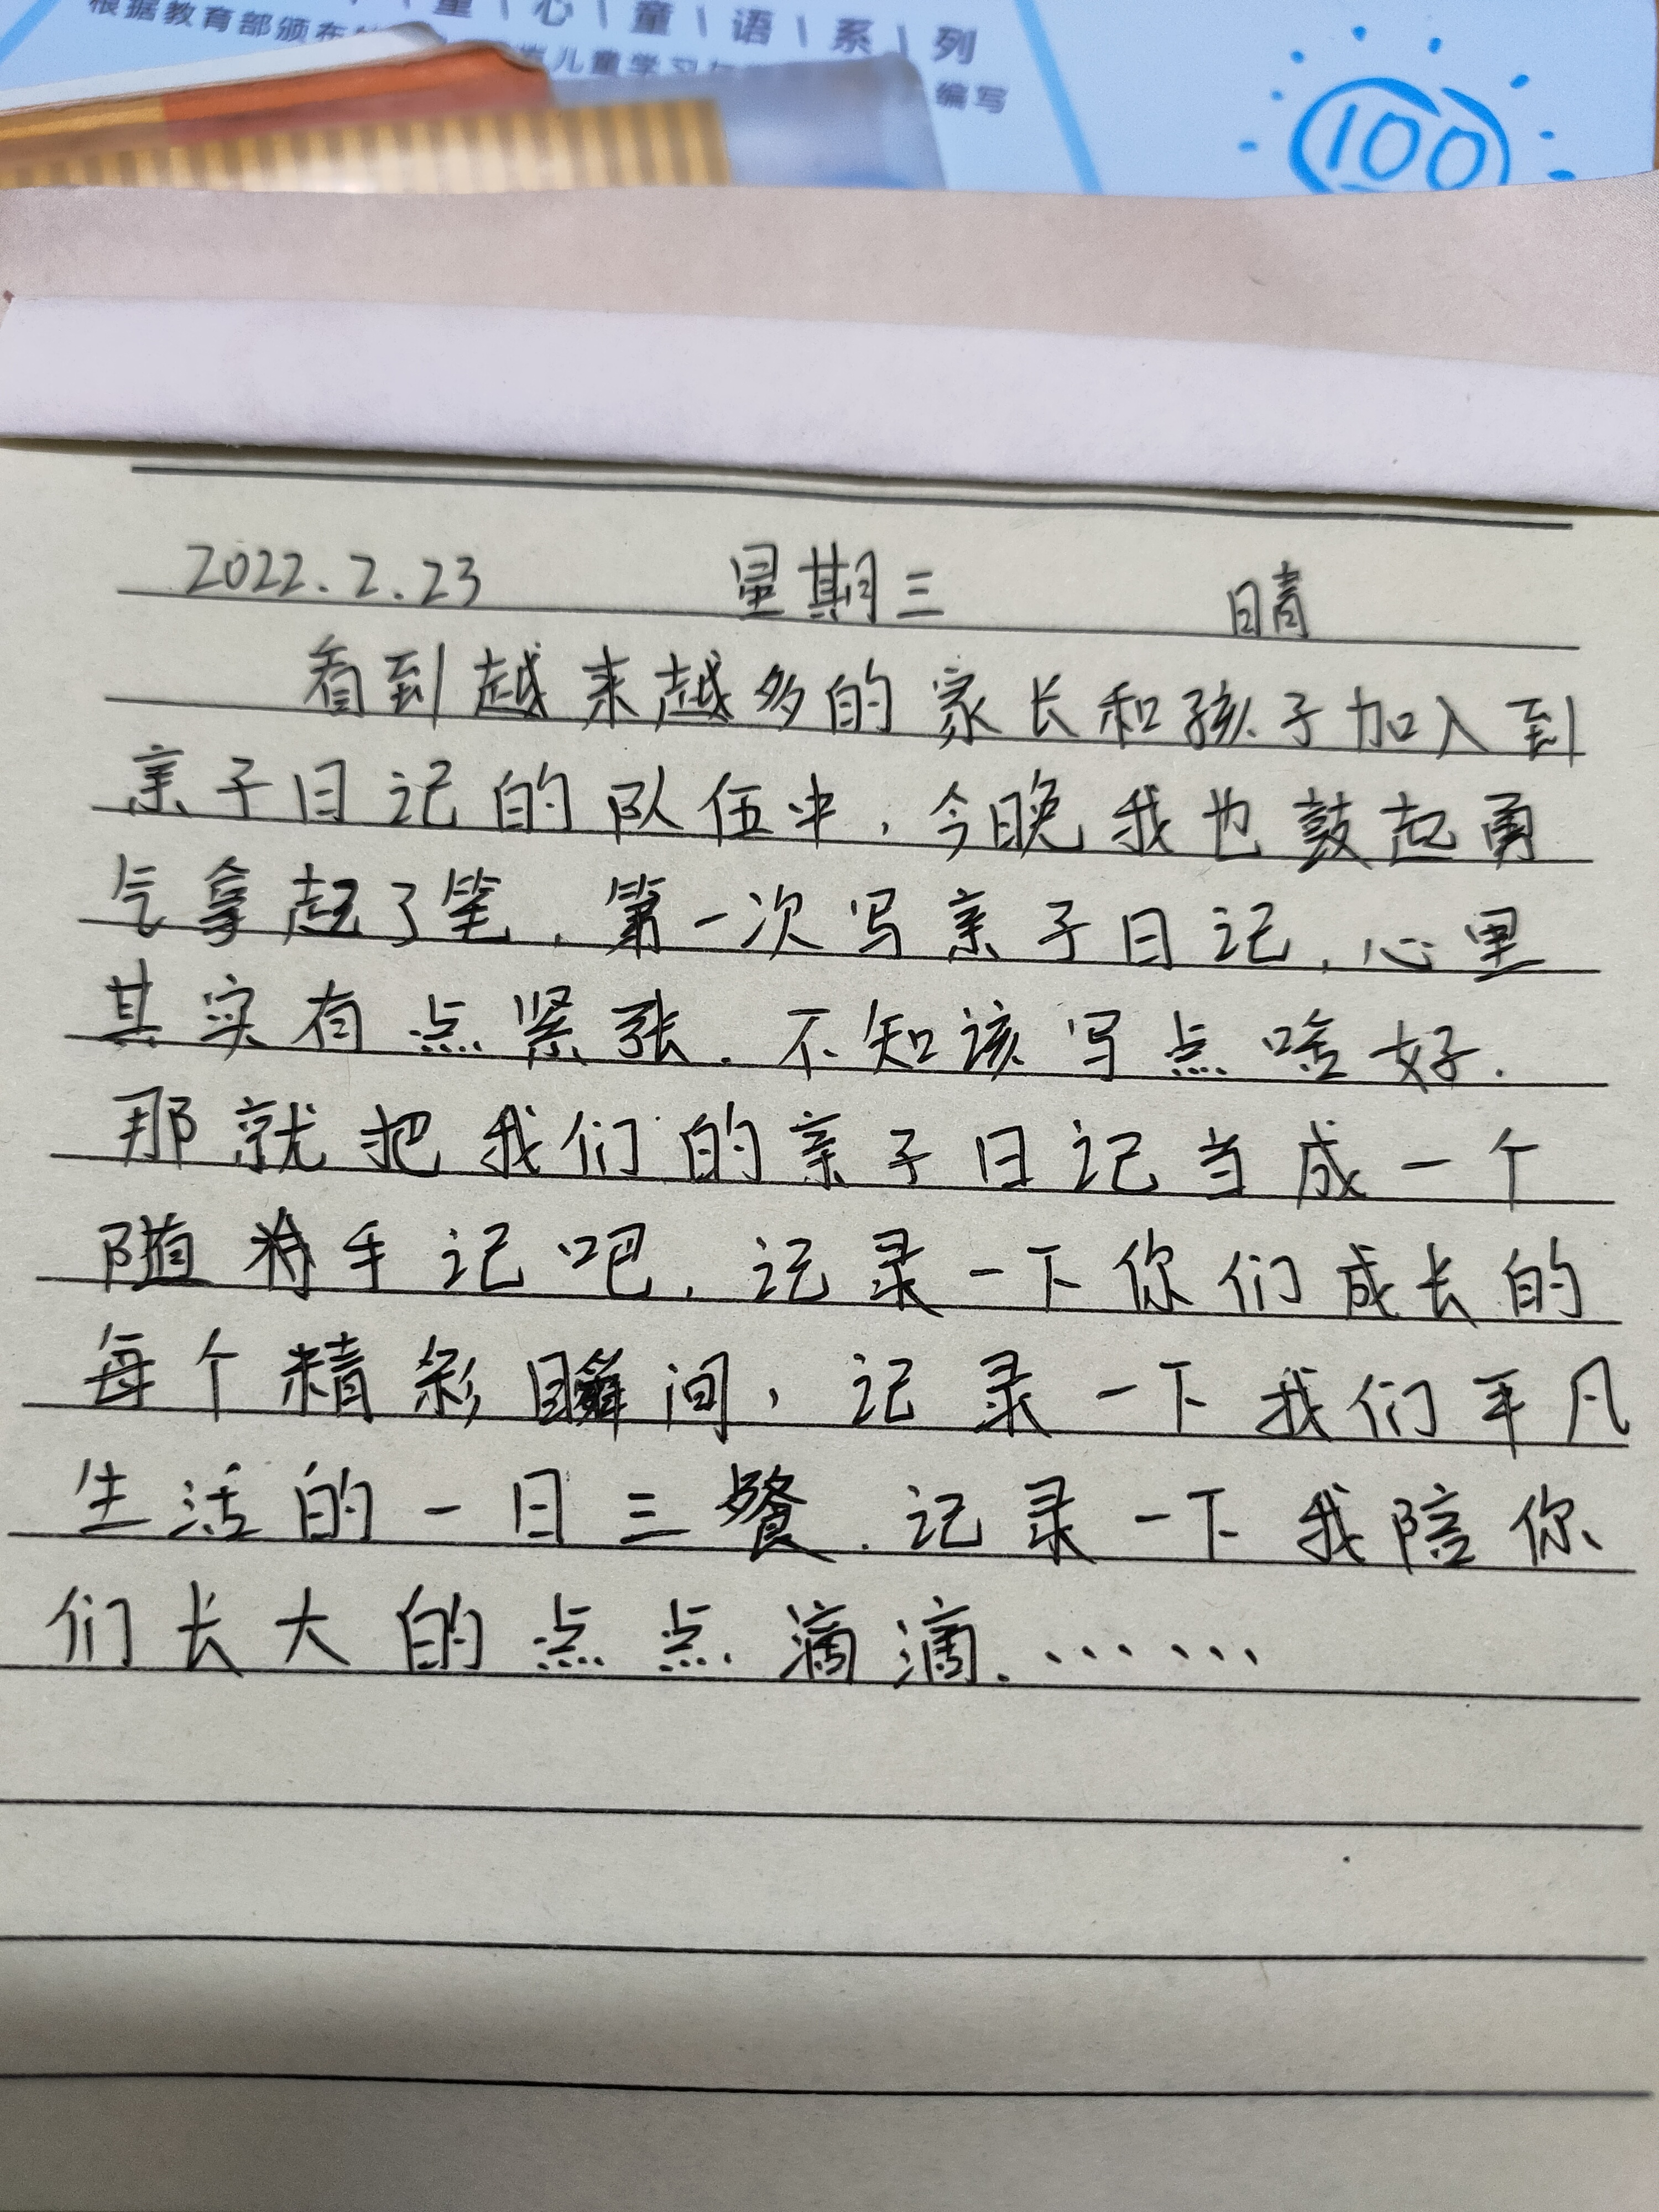 星 | 心 | 童 | 语 | 系 | 列
根据教育部颁布
儿童学习与
编写
100
2022.2.23 星期三 晴
看到越来越多的家长和孩子加入到
亲子日记的队伍中,今晚我也鼓起勇
气拿起了笔,第一次写亲子日记,心里
其实有点紧张.不知该写点啥好.
那就把我们的亲子日记当成一个
随手记吧,记录一下你们成长的
每个精彩瞬间,记录一下我们平凡
生活的一日三餐.记录一下我陪你
们长大的点点滴滴.……